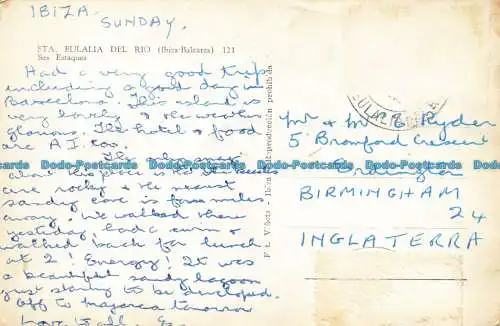 IBIZA
SUNDAY.
STA. EULALIA DEL RIO (Ibiza-Baleares) 121
Ses Estaques
Had a very good trip
including a good day in
Barcelona. This island is
very lovely & the weather
glorious. The hotel & food
are A.I. too.
The only
about this place is the
are rocky & the nearest
sandy cove is four miles
away. We walked there
yesterday, had a swim &
walked back for lunch
at 2! Energy! It was
a beautiful sandy lagoon
just starting to be developed.
Off to Majorca tomorrow
Love to all.
prohibida
Mr & Mrs Ryder
5 Bromford Crescent
Erdington
BIRMINGHAM
24
INGLATERRA
Dodo-Postcards Dodo-Postcards Dodo-Postcards Dodo-Postcards